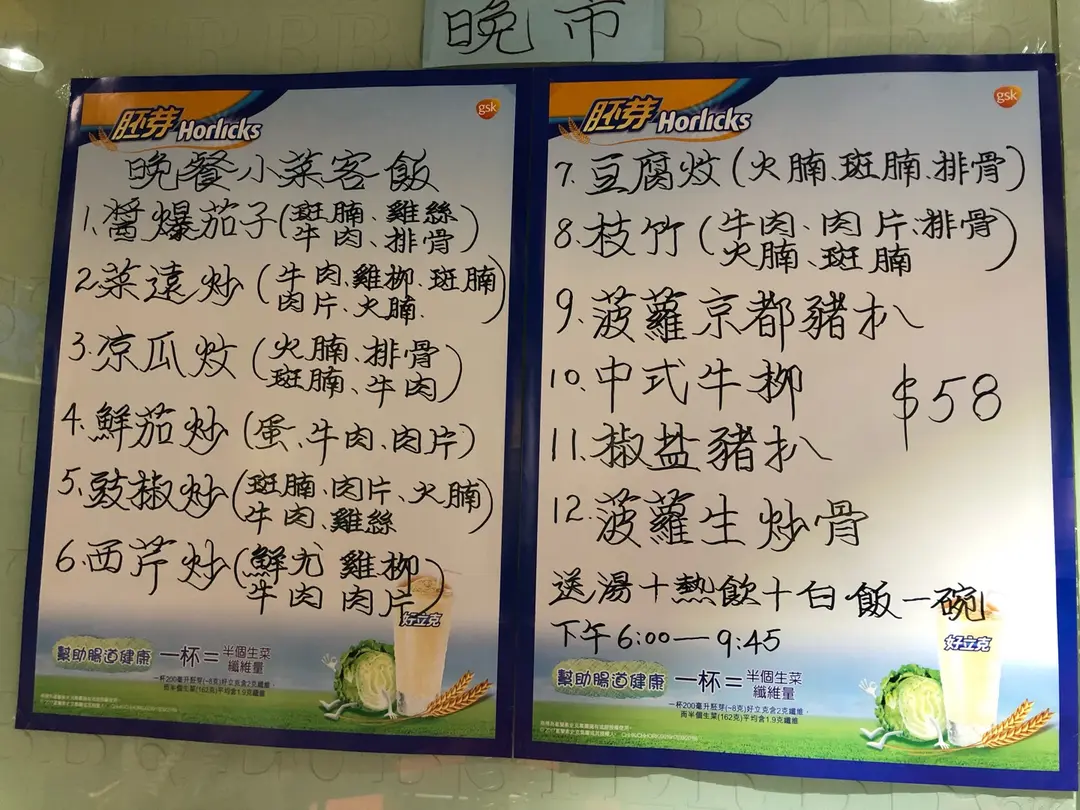 晚市
胚芽 Horlicks
gsk
晚餐小菜客飯
1.醬爆茄子(斑腩、雞絲
牛肉、排骨)
2.菜遠炒(牛肉、雞柳、斑腩
肉片、火腩)
3.凉瓜炆(火腩、排骨
斑腩、牛肉)
4.鮮茄炒(蛋、牛肉、肉片)
5.豉椒炒(斑腩、肉片、火腩
牛肉、雞絲)
6.西芹炒(鮮尤 雞柳
牛肉 肉片)
好立克
幫助腸道健康 一杯=半個生菜
纖維量
一杯200毫升胚芽(~8克)好立克含2克纖維
而半個生菜(162克)平均含1.9克纖維
胚芽 Horlicks
gsk
7.豆腐炆(火腩、斑腩、排骨)
8.枝竹(牛肉、肉片、排骨
火腩、斑腩)
9.菠蘿京都豬扒
10.中式牛柳
$58
11.椒盐豬扒
12.菠蘿生炒骨
送湯+熱飲+白飯一碗
下午6:00—9:45
好立克
幫助腸道健康 一杯=半個生菜
纖維量
一杯200毫升胚芽(~8克)好立克含2克纖維,
而半個生菜(162克)平均含1.9克纖維